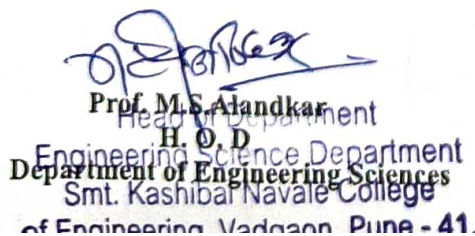 Prof. M.S.Alandkar
Head of Department
H. O. D
Engineering Science Department
Department of Engineering Sciences
Smt. Kashibai Navale College
of Engineering, Vadgaon, Pune - 41.